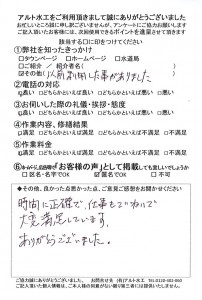 アルト水工をご利用頂きまして誠にありがとうございました
お忙しいところ誠に申し訳ございませんが、アンケートにご協力お願いします
ご記入頂いたお客様には、次回使用できるポイントを進呈させて頂きます
該当する□に印をつけてください
①弊社を知ったきっかけ
□タウンページ □ホームページ □水道局
□ご紹介(ご紹介者名: )
☑その他(以前利用した事がありました)
②電話の対応
☑良い □どちらかといえば良い □どちらかといえば悪い □悪い
③お伺いした際の礼儀・挨拶・態度
☑良い □どちらかといえば良い □どちらかといえば悪い □悪い
④作業内容、修繕結果
☑満足 □どちらかといえば満足 □どちらかといえば不満足 □不満足
⑤作業料金
☑満足 □どちらかといえば満足 □どちらかといえば不満足 □不満足
「お客様の声」として掲載しても宜しいでしょうか
□匿名でOK □不可
◆その他、良かった点悪かった点、ご意見ご感想をお聞かせください
時間に正確で、仕事もていねいで
大変満足しています。
ありがとうございました。
ご協力誠にありがとうございました。 お問合わせ先 (有)アルト水工 TEL0120-481-060